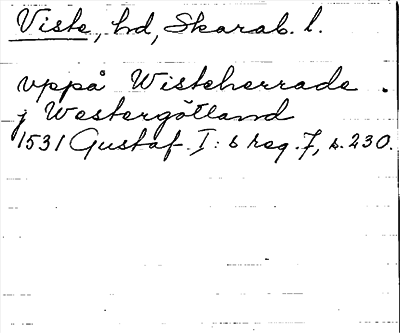 Viste, hd, Skarab. l.
vppå Wisteherrade
j Westergötland
1531 Gustaf I:s reg. 7, s. 230.